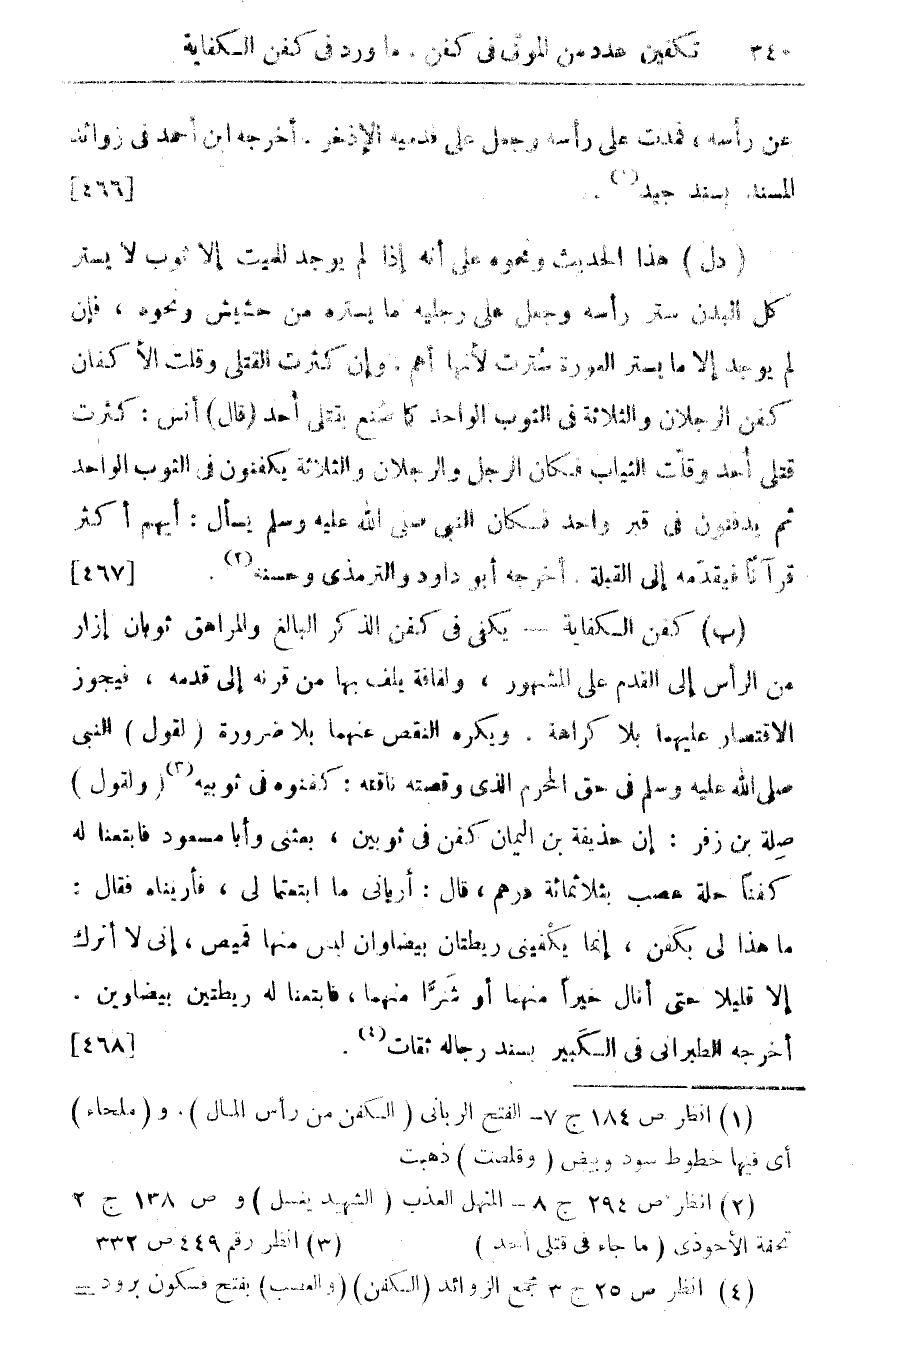 ٣٤٠ تكفين عدد من الموتى فى كفن . ما ورد فى كفن الكفاية
عن رأسه ، فمدت على رأسه وجعل على قدميه الإذخر . أخرجه ابن أحمد فى زوائد
المسند بسند جيد(١) . [٤٦٦]
( دل ) هذا الحديث ونحوه على أنه إذا لم يوجد للميت إلا ثوب لا يستر
كل البدن ستر رأسه وجعل على رجليه ما يستره من حشيش ونحوه ، فإن
لم يوجد إلا ما يستر العورة سُترت لأنها أهم . وإن كثرت القتلى وقلت الأكفان
كفن الرجلان والثلاثة فى الثوب الواحد كما صُنع بقتلى أُحد (قال) أنس : كثرت
قتلى أُحد وقلّت الثياب فكان الرجل والرجلان والثلاثة يكفنون فى الثوب الواحد
ثم يدفنون فى قبر واحد فكان النبى صلى الله عليه وسلم يسأل : أيهم أكثر
قرآناً فيقدّمه إلى القبلة . أخرجه أبو داود والترمذى وحسنه(٢) . [٤٦٧]
(ب) كفن الكفاية — يكفى فى كفن الذكر البالغ والمراهق ثوبان إزار
من الرأس إلى القدم على المشهور ، ولفافة يلف بها من قرنه إلى قدمه ، فيجوز
الاقتصار عليهما بلا كراهة . ويكره النقص عنهما بلا ضرورة ( لقول ) النبى
صلى الله عليه وسلم فى حق المحرم الذى وقصته ناقته : كفنوه فى ثوبيه(٣) ( ولقول )
صِلة بن زفر : إن حذيفة بن اليمان كفن فى ثوبين ، بعثنى وأبا مسعود فابتعنا له
كفناً حلة عصب بثلاثمائة درهم ، قال : أريانى ما ابتعتما لى ، فأريناه فقال :
ما هذا لى بكَفن ، إنما يكْفينى ريطتان بيضاوان ليس منها قميص ، إنى لا أترك
إلا قليلا حتى أنال خيراً منهما أو شَرًّا منهما ، فابتعنا له ريطتين بيضاوين .
أخرجه الطبرانى فى الكَبير بسند رجاله ثقات(٤) . [٤٦٨]
(١) انظر ص ١٨٤ ج ٧ – الفتح الربانى ( الكفن من رأس المال ) . و ( ملحاء )
أى فيها خطوط سود وبيض ( وقلصت ) ذهبت
(٢) انظر ص ٢٩٤ ج ٨ – المنهل العذب ( الشهيد يغسل ) و ص ١٣٨ ج ٢
تحفة الأحوذى ( ما جاء فى قتلى أحد ) (٣) انظر رقم ٤٤٩ ص ٣٣٢
(٤) انظر ص ٢٥ ج ٣ مجمع الزوائد (الكفن) (والعصب) بفتح فسكون برود =